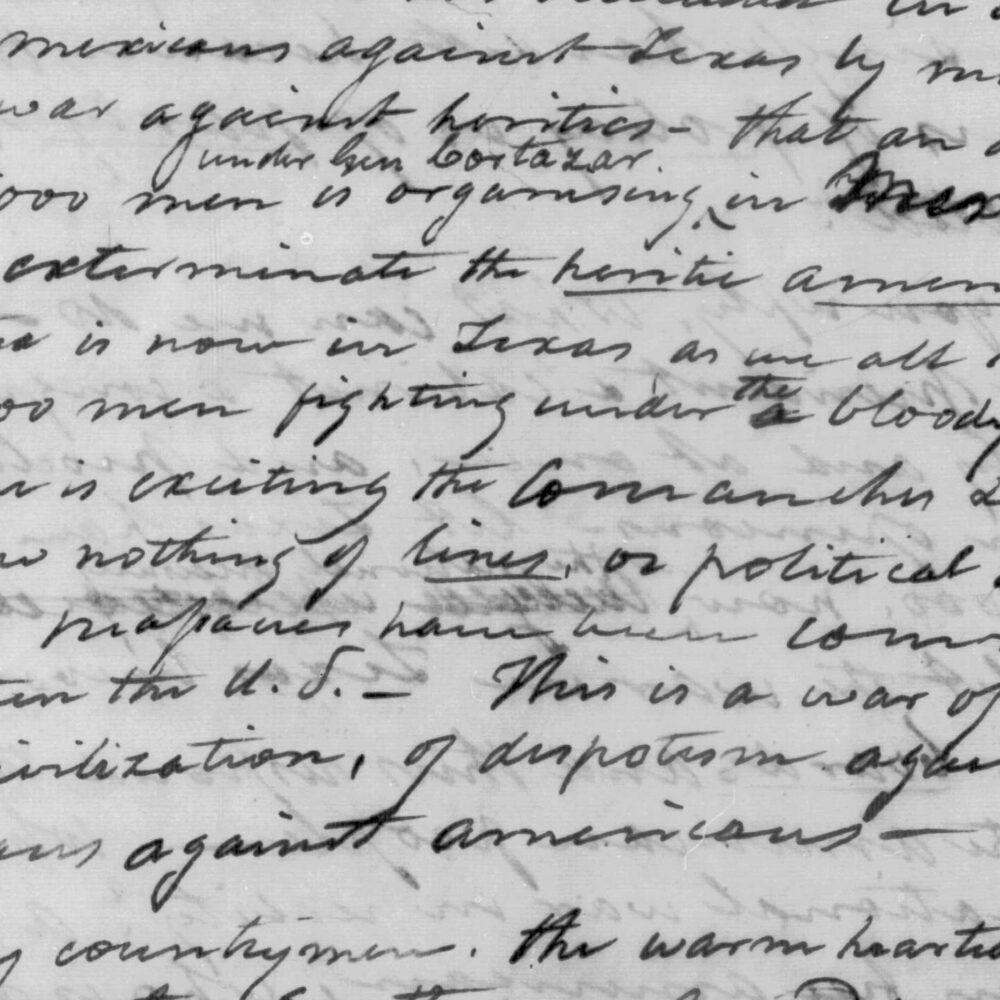 in
mexicans against Texas by
war against heritics - that an
under Gen Cortazar
000 men is organising, in Mex
exterminate the heritic amer
is now in Texas as we all
00 men fighting under the bloody
is exciting the Comanches
nothing of lines, or political
have been com
the U. S. - This is a war of
ivilization, of despotism agai
ans against americans -
y countrymen. The warm hearte